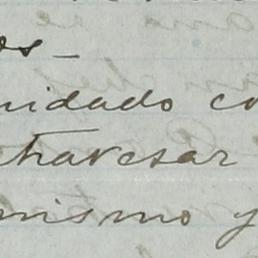 os_
uidado co
travesar
mismo y